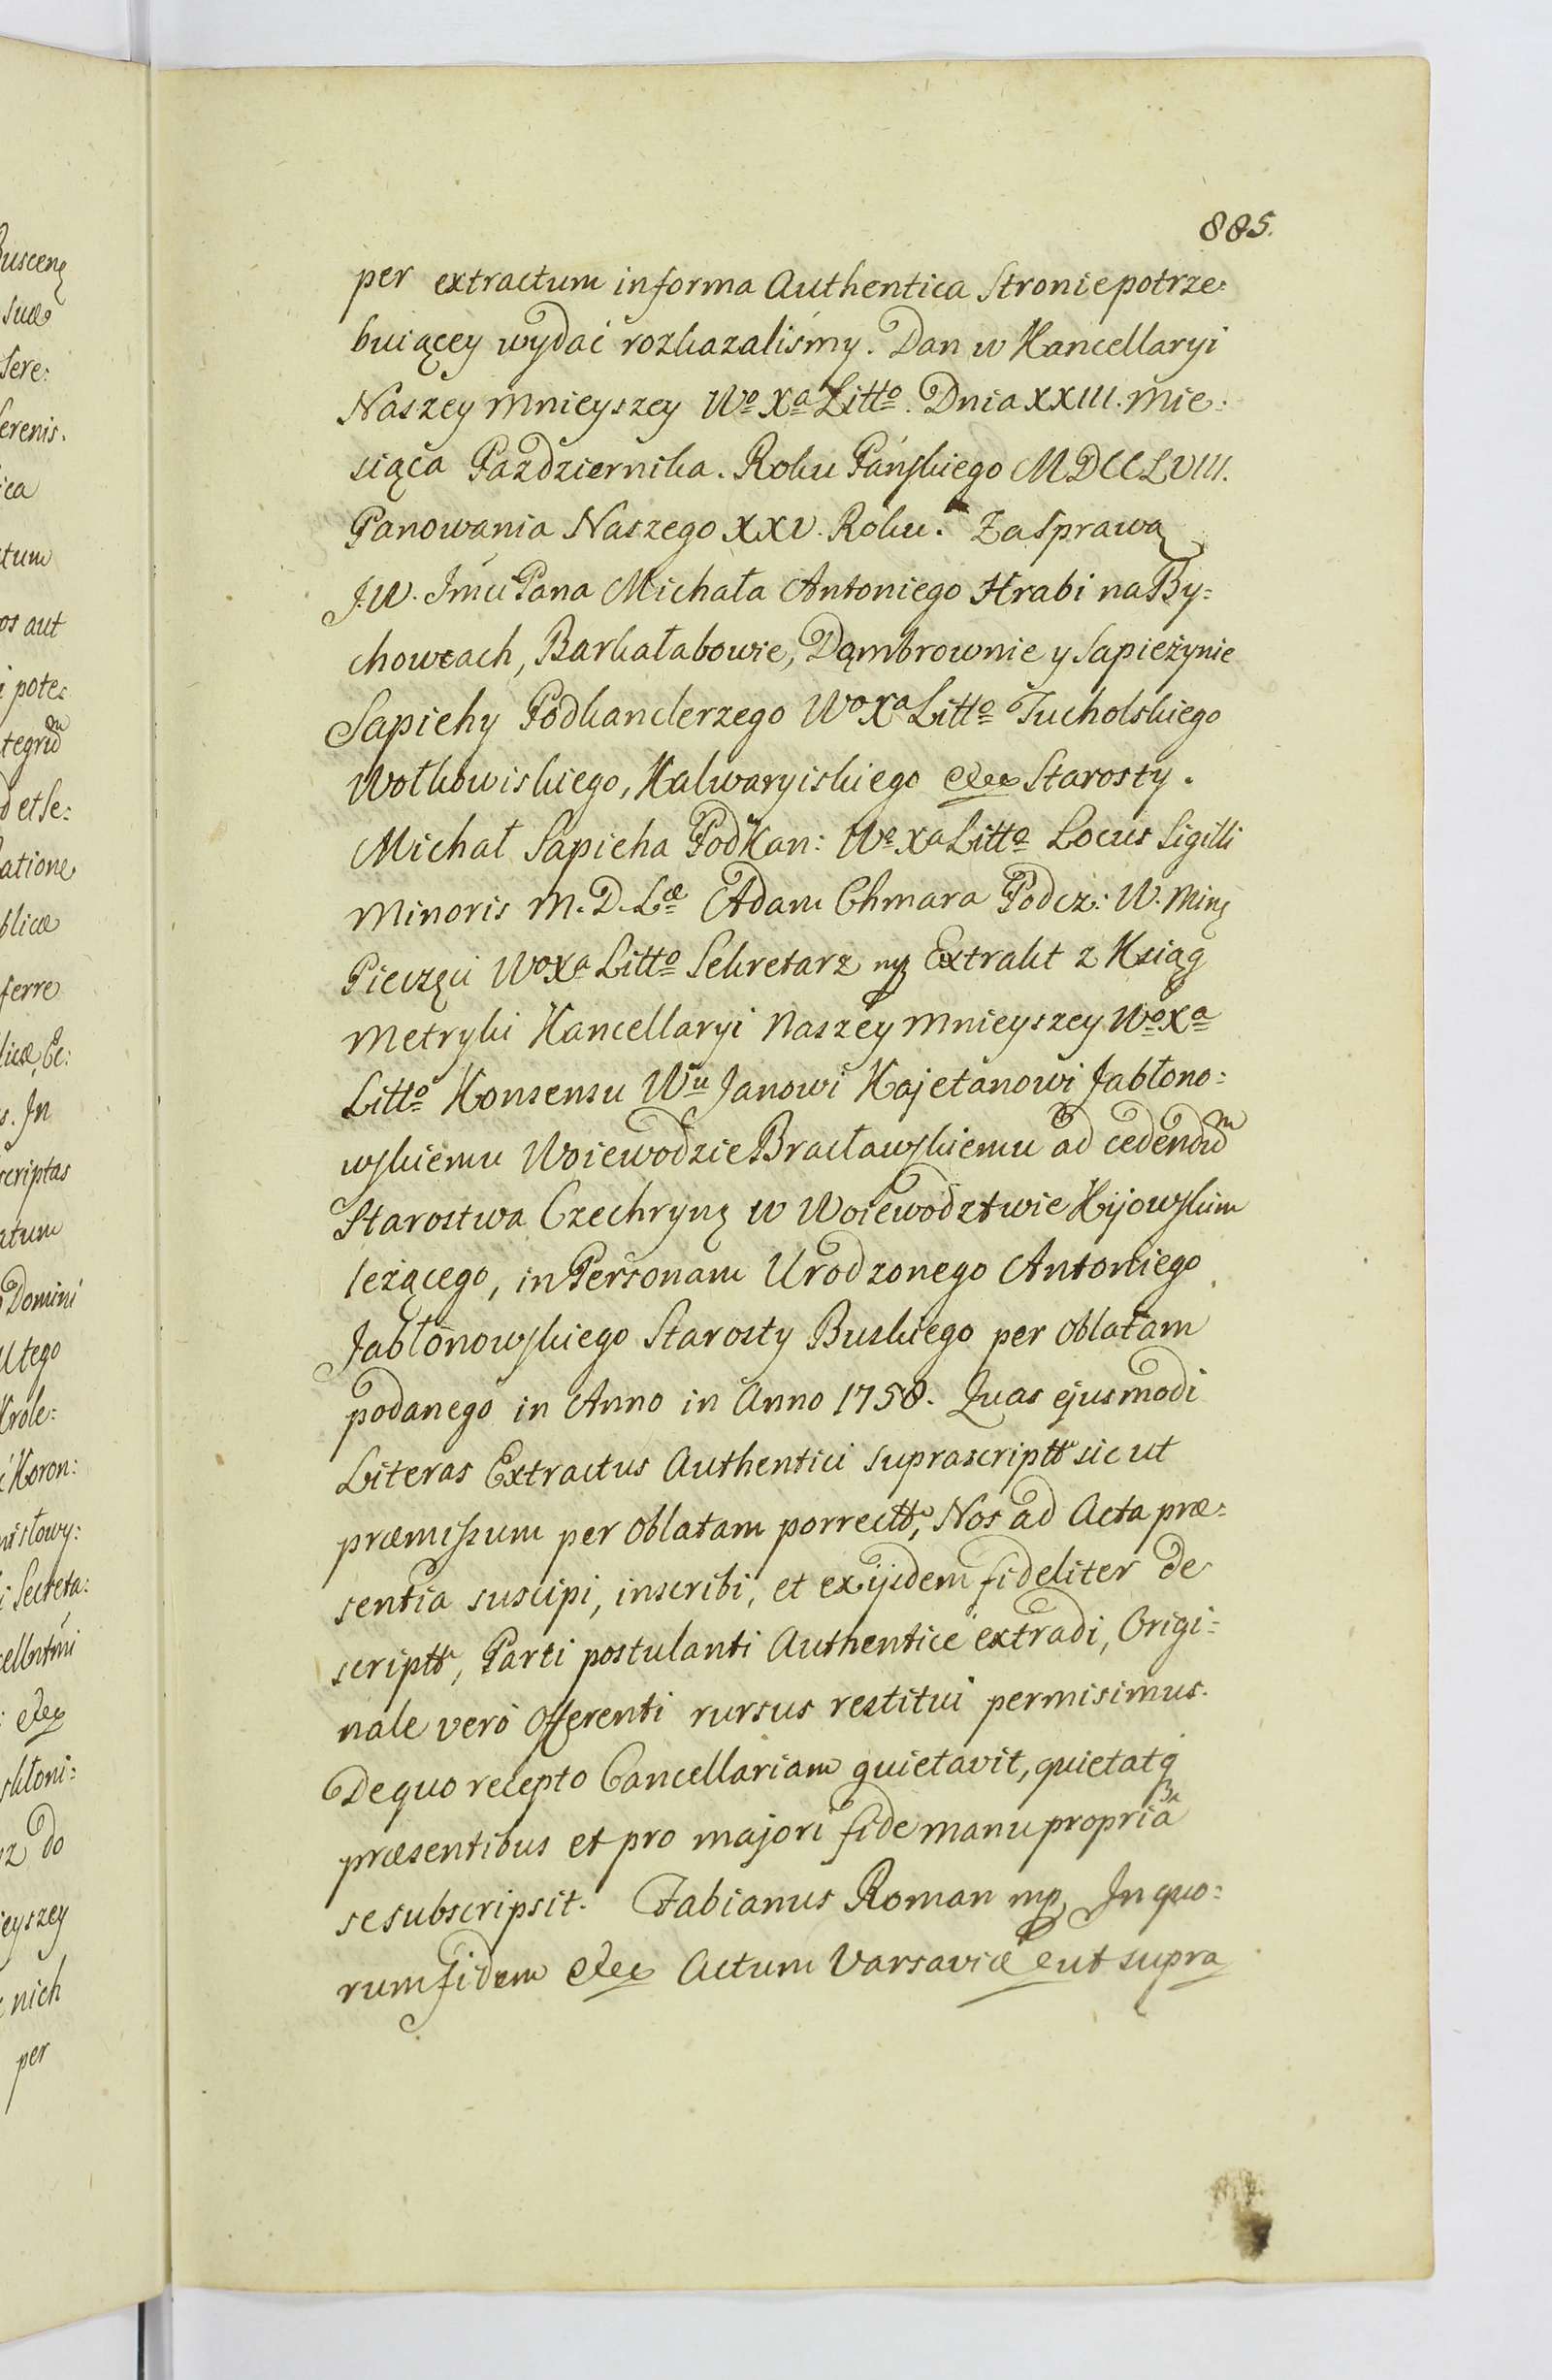 885.
per extractum in forma Authentica Stronie potrze:
buiącey wydać rozkazaliśmy. Dan w Kancellaryi
Naszey Mnieyszey Wo Xa Litto. Dnia XXIII. Mie:
siąca Pazdziernika. Roku Pańskiego MDCCLVIII.
Panowania Naszego XXV. Roku. Za Sprawą
J.W. Jmći Pana Michała Antoniego Hrabi na By:
chowcach, Barkałabowie, Dąmbrownie y Sapieżynie
Sapiehy Podkanclerzego Wo Xa Litto Tucholskiego
Wołkowiskiego, Kalwaryiskiego etc Starosty.
Michał Sapieha PodKan: Wo Xa Litto Locus Sigilli
Minoris M.D.Læ Adam Chmara Podcz: W. Minę
Pieczęci Wo Xa Litto Sekretarz mp Extrakt z Ksiąg
Metryki Kancellaryi Naszey Mnieyszey Wo Xa
Litto Konsensu Wu Janowi Kajetanowi Jabłono:
wskiemu Woiewodzie Bracławskiemu ad cedendum
Starostwa Czechryng w Woiewodztwie Kijowskim
leżącego, in Personam Urodzonego Antoniego
Jabłonowskiego Starosty Buskiego per Oblatam
podanego in Anno in Anno 1758. Quas ejusmodi
Literas Extractus Authentici suprascriptt sic ut
præmissum per Oblatam porrectt, Nos ad Acta præ:
sentia suscipi, inscribi, et ex ijsdem fideliter de
scriptt, Parti postulanti Authentice extradi, Origi:
nale verò Offerenti rursus restitui permisimus.
De quo recepto Cancellariam quietavit, quietatq
præsentibus et pro majori fide manu propriâ
se subscripsit. Fabianus Roman mp, In quo:
rum fidem etc Actum Varsaviæ eut supra